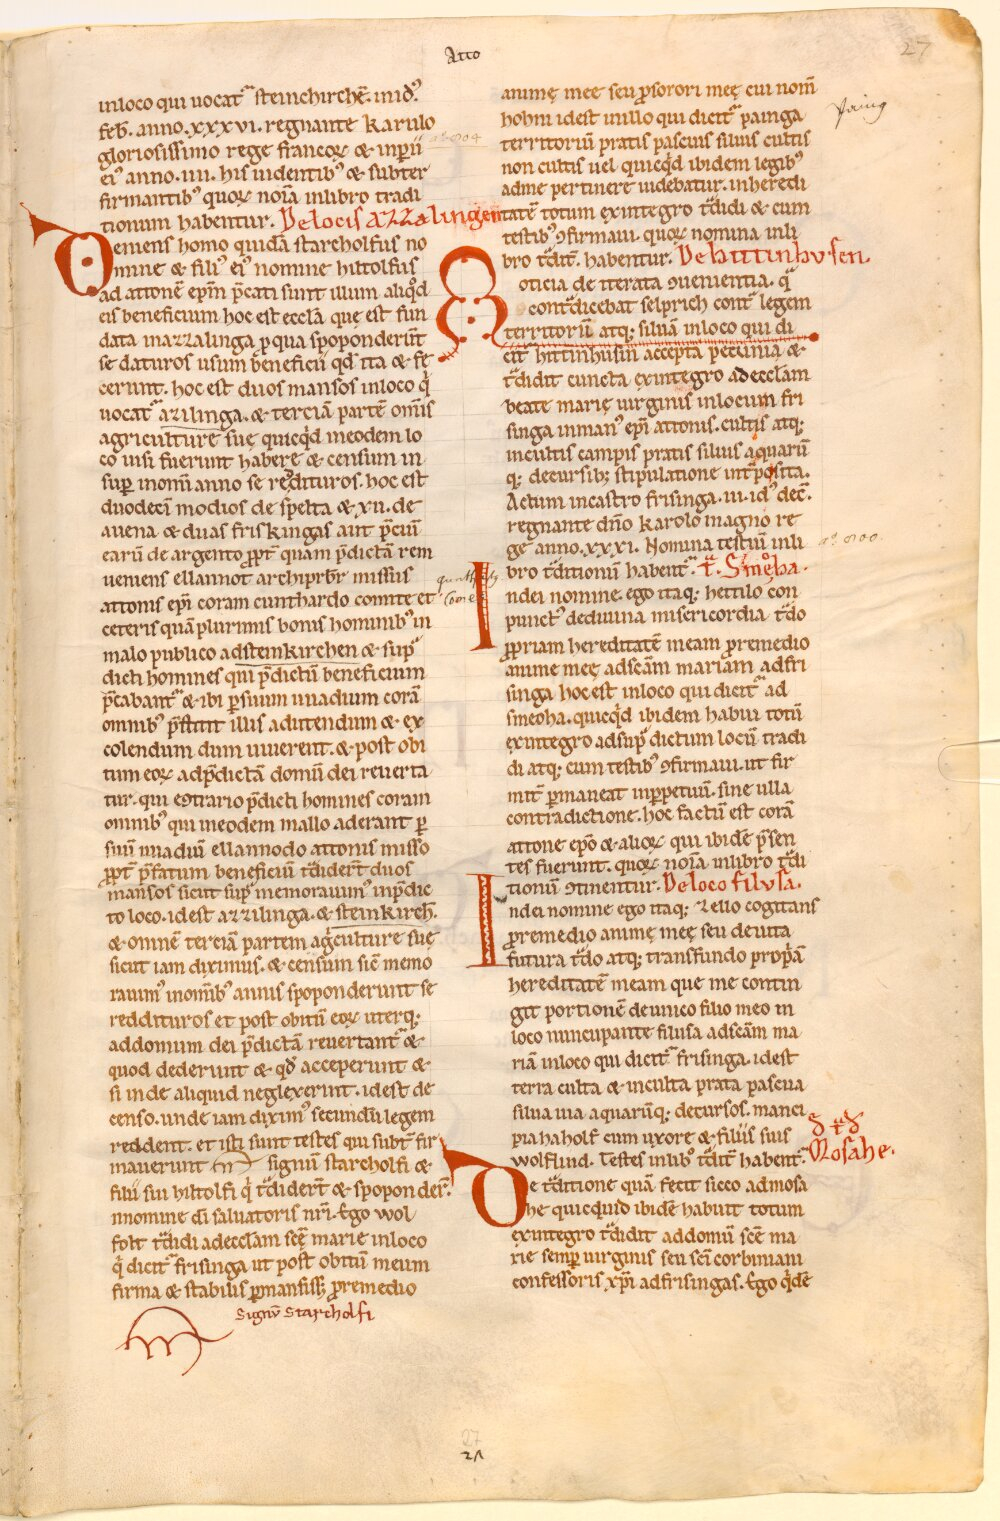 Atto
27
inloco qui uocat᷑ steinchirchē. in id᷒.
feb̄. anno. xxxvi. regnante karulo
gloriosissimo rege francoꝝ & inp̄ii
ei᷒ anno. iiii. his uidentib᷒ & subter
firmantib᷒ quoꝝ noīa inlibro tradi
tionum habentur. De locis azzalingen
Oemens homo quidā starcholfus no
mine & fili᷒ ei᷒ nomine hiltolfus
ad attonē ep̄m p̄cati sunt illum aliqd
eis beneficium hoc est ecclā que est fun
data inazzalinga ꝑ qua spoponderūt
se daturos usum beneficii qd ita & fe
cerunt. hoc est duos mansos inloco q̇
uocat᷑ azilinga. & terciā partē om̄is
agriculture sue quicqd ineodem lo
co uisi fuerunt habere & censum in
suꝑ inom̄i anno se reddituros. hoc est
duodecī modios de spelta & xii. de
auena & duas friskingas aut p̄ciū
earū de argento ꝓpt̄ quam p̄dictā rem
ueniens ellannot archipr̄br̄ missus
attonis ep̄i coram cunthardo comite et
ceteris quā plurimis bonis hominib᷒ in
malo publico adsteinkirchen & sup̄
dicti homines qui p̄dictū beneficium
p̄cabant᷑ & ibi ꝑ suum uuadium corā
omnib᷒ p̄stitit illis adutendum & ex
colendum dum uiuerent. & post obi
tum eoꝝ adp̄dictā domū dei reuerta
tur. qui eꝯtrario p̄dicti homines coram
omnib᷒ qui ineodem mallo aderant ꝑ
suū uuadiū ellannodo attonis misso
ꝓpt̄ p̄fatum beneficiū t̄didert̄ duos
mansos sicut suꝑ memorauim᷒ inp̄dic
to loco. idest azzilinga. & steinkirch̄.
& omnē terciā partem ag̊culture sue
sicut iam diximus. & censum sic̄ memo
rauim᷒ inom̄ib᷒ annis spoponderunt se
reddituros et post obitū eoꝝ uterq;
addomum dei p̄dictā reuertant᷑ &
quod dederunt & qd̄ acceperunt &
si inde aliquid neglexerint. idest de
censo. unde iam dixim᷒ secundū legem
reddent. et isti sunt testes qui subt̄ fir
mauerunt signū starcholfi &
filii sui hiltolfi q̇ t̄didert̄ & sponder̄.
Innomine dī saluatoris nr̄i. Ego wol
folt t̄didi adecclam scē marie inloco
q̇ dicit᷑ frisinga ut post obitum meum
firma & stabilis ꝑmansiss; ꝓremedio
Signū Starcholfi
anime mee seu ꝓsorori mee cui nom̄
hohm idest inillo qui dicit᷑ painga
territoriū pratis pascuis siluis cultis
non cultis uel quicqd ibidem legib᷒
adme pertinere uidebatur. inheredi
tatē totum exintegro t̄didi & cum
testib᷒ ꝯfirmaui. quoꝝ nomina inli
bro t̄dit̄. habentur. De hittinhusen
oticia de iterata ꝯuenientia. q̄
contradicebat selprich cont̄ legem
territoriū atq; siluā inloco qui di
cit̄ hittinhusin accepta pecunia &
t̄didit cuncta exintegro adecclam
beate marie uirginis inlocum fri
singa inman᷒ ep̄i attonis. cultis atq;
incultis campis pratis siluis aquarū
q; decursib; stipulatione int̄posita.
Actum incastro frisinga. iii. id᷒ dec̄.
regnante dn̄o karolo magno re
ge anno. xxxi. Nomina testiū inli
bro t̄ditionū habent᷑. t̄. Smeoha.
Indei nomine. ego itaq; hettilo con
punct᷒ dediuina misericordia t̄do
ꝓpriam hereditatē meam ꝓremedio
anime mee adscām mariam adfri
singa hoc est inloco qui dicit᷑ ad
smeoha. quicqd ibidem habui totū
exintegro adsup̄ dictum locū tradi
di atq; cum testib᷒ ꝯfirmaui. ut fir
mit̄ ꝑmaneat inꝑpetuū. sine ulla
contradictione. hoc factū est corā
attone ep̄o & alioꝝ qui ibidē p̄sen
tes fuerunt. quoꝝ noīa inlibro t̄di
tionū ꝯtinentur. De loco filusa.
Indei nomine ego itaq; Zello cogitans
ꝓremedio anime mee seu deuita
futura t̄do atq; transfundo propāā
hereditatē meam que me contin
git portionē deunico filio meo in
loco nuncupante filusa adscām ma
riā inloco qui dicit᷑ frisinga. idest
terra culta & inculta prata pascua
silua uia aquarūq; decursos. manci
pia haholt cum uxore & filiis suis
wolflind. Testes inlib᷒ t̄dit̄ habent᷑.
De t̄ditione quā fecit sicco admosa
he quicquid ibidē habuit totum
exintegro t̄didit addomū scē ma
rie semꝑ uirginis seu scī corbiniani
confessoris xp̄i adfrisingas. Ego q̇dē
Paing
aº 800.
aº 804
Gunthart
Comes
đ t̄đ
Mosahe.
27
21